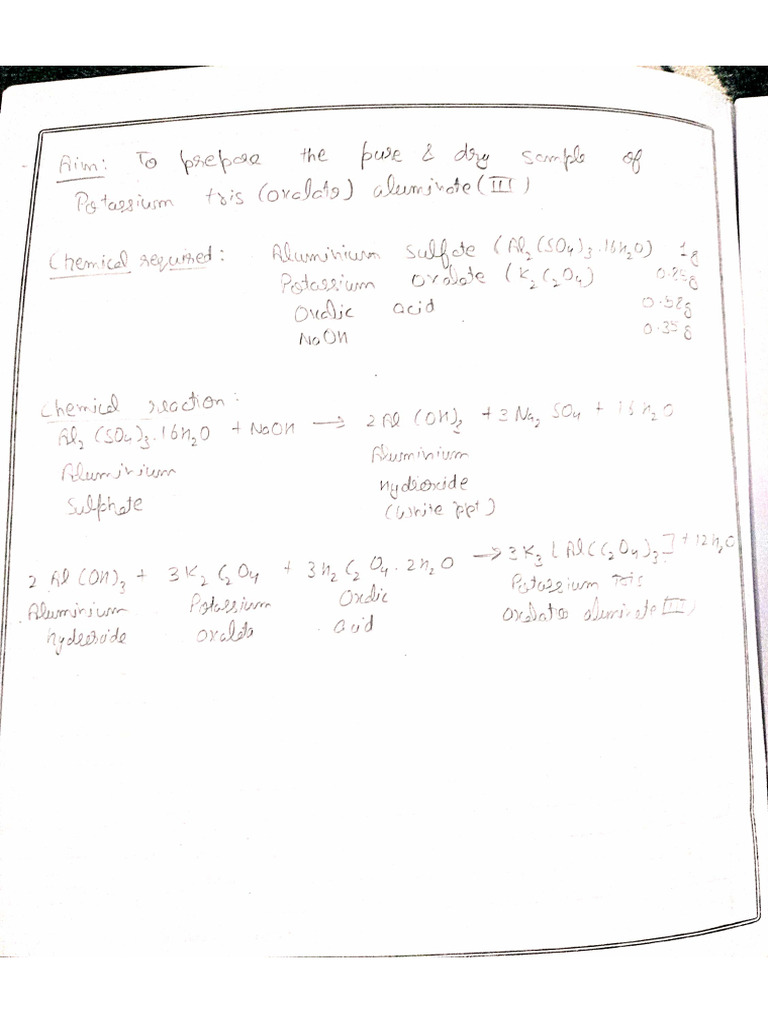 Aim: To prepare the pure & dry sample of
Potassium tris (oxalato) aluminate (III)
Chemical required: Aluminium sulfate (Al2(SO4)3.16H2O) 1g
Potassium oxalate (K2C2O4) 0.85g
Oxalic acid 0.58g
NaOH 0.35g
Chemical reaction:
Al2(SO4)3.16H2O + NaOH → 2Al(OH)3 + 3Na2SO4 + 15H2O
Aluminium Sulphate
Aluminium hydroxide (White ppt)
2Al(OH)3 + 3K2C2O4 + 3H2C2O4.2H2O → 3K3[Al(C2O4)3] + 12H2O
Aluminium Potassium Oxalic Potassium tris
hydroxide oxalate acid oxalato aluminate (III)